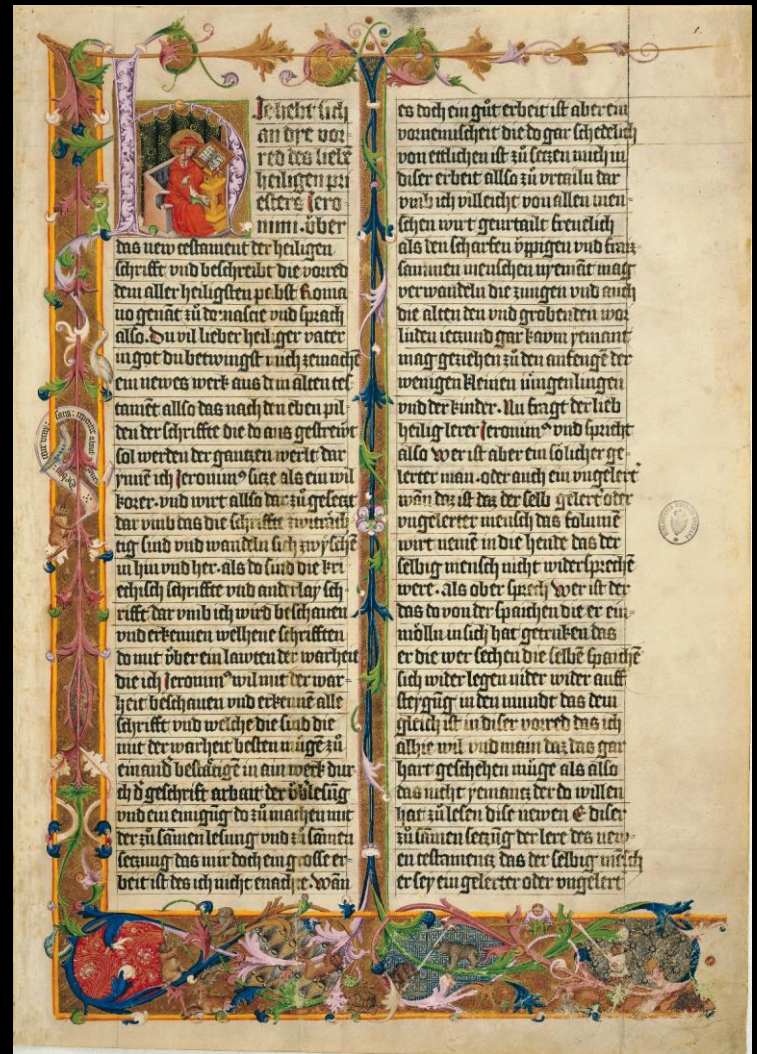 1.
Je hebt sich
an dye vor
red des liebē
heiligen pri
esters Jero
nimi. vber
das new testament der heiligen
schrifft vnd beschreibt die vorred
dem aller heiligsten pabst Roma
no genāt zů do nascie vnd sprach
also. Du vil lieber heiliger vater
in got du betwingst mich zemachē
ein newes werk aus dem alten tes-
tamēt allso das nach den eben pil-
den der schriffte die do aus gestrewt
sol werden der gantzen werlt dar
ynnē ich Jeronimꝰ sitze als ein wil
korer. vnd wirt allso dar zů gesetzt
dar vmb das die schriffte zwiträch
tig sind vnd wandeln sich zwyschē
in hin vnd her. als do sind die kri
echisch schriffte vnd anderlay sch-
rifft dar vmb ich wird beschauen
vnd erkennen welhene schrifften
do mit vͦber ein lawten der warheit
die ich Jeronimꝰ wil mit der war-
heit beschauen vnd erkennē alle
schrifft vnd welche die sind die
mit der warheit besten mügē zů
einand bestätigē in ain werk dur
ch d̓ geschrift arbait der vͦb̓lesūg
vnd ein einigūg do zů machen mit
der zů sāmen lesung vnd zů sāmen
setzung das mir doch ein grosse er-
beit ist des ich nicht enachte. Wān
es doch ein gůt erbeit ist aber ein
vornemischeit die do gar schedelich
von ettlichen ist zů setzen mich in
diser erbeit allso zů vrtailn dar
vmb ich villeicht von allen men-
schen wirt geurtailt freuelich
als den scharfen vppigen vnd
samnen menschen nyemāt mag
verwandeln die zungen vnd auch
die alten den vnd grobenden wor
linden ietzund gar kaym yemant
mag geziehen zů den anfenge der
wenigen kleinen iungenlingen
vnd der kinder. Nu fragt der lieb
heilig lerer Jeronimꝰ vnd spricht
also Wer ist aber ein sölicher ge-
lerter man. oder auch ein vngelert
wān daz ist daz der selb gelert oder
vngelerter mensch das folumē
wirt nemē in die hende das der
selbig mensch nicht widersprechē
were. als ober sprech Wer ist der
das do von der spaichen die er ein-
mölln in sich hat getruken das
er die wer sechen die selbē spaichē
sich wider legen nider wider auff
steygūg in den mundt das dem
gleich ist in diser vorred das ich
alhie wil vnd main daz das gar
hart geschehen müge als also
das nicht yemantz der do willen
hat zů lesen dise newen E diser
zů sāmen setzūg der lere des new-
en testamentz das der selbig mēsch
er sey ein gelerter oder vngelert